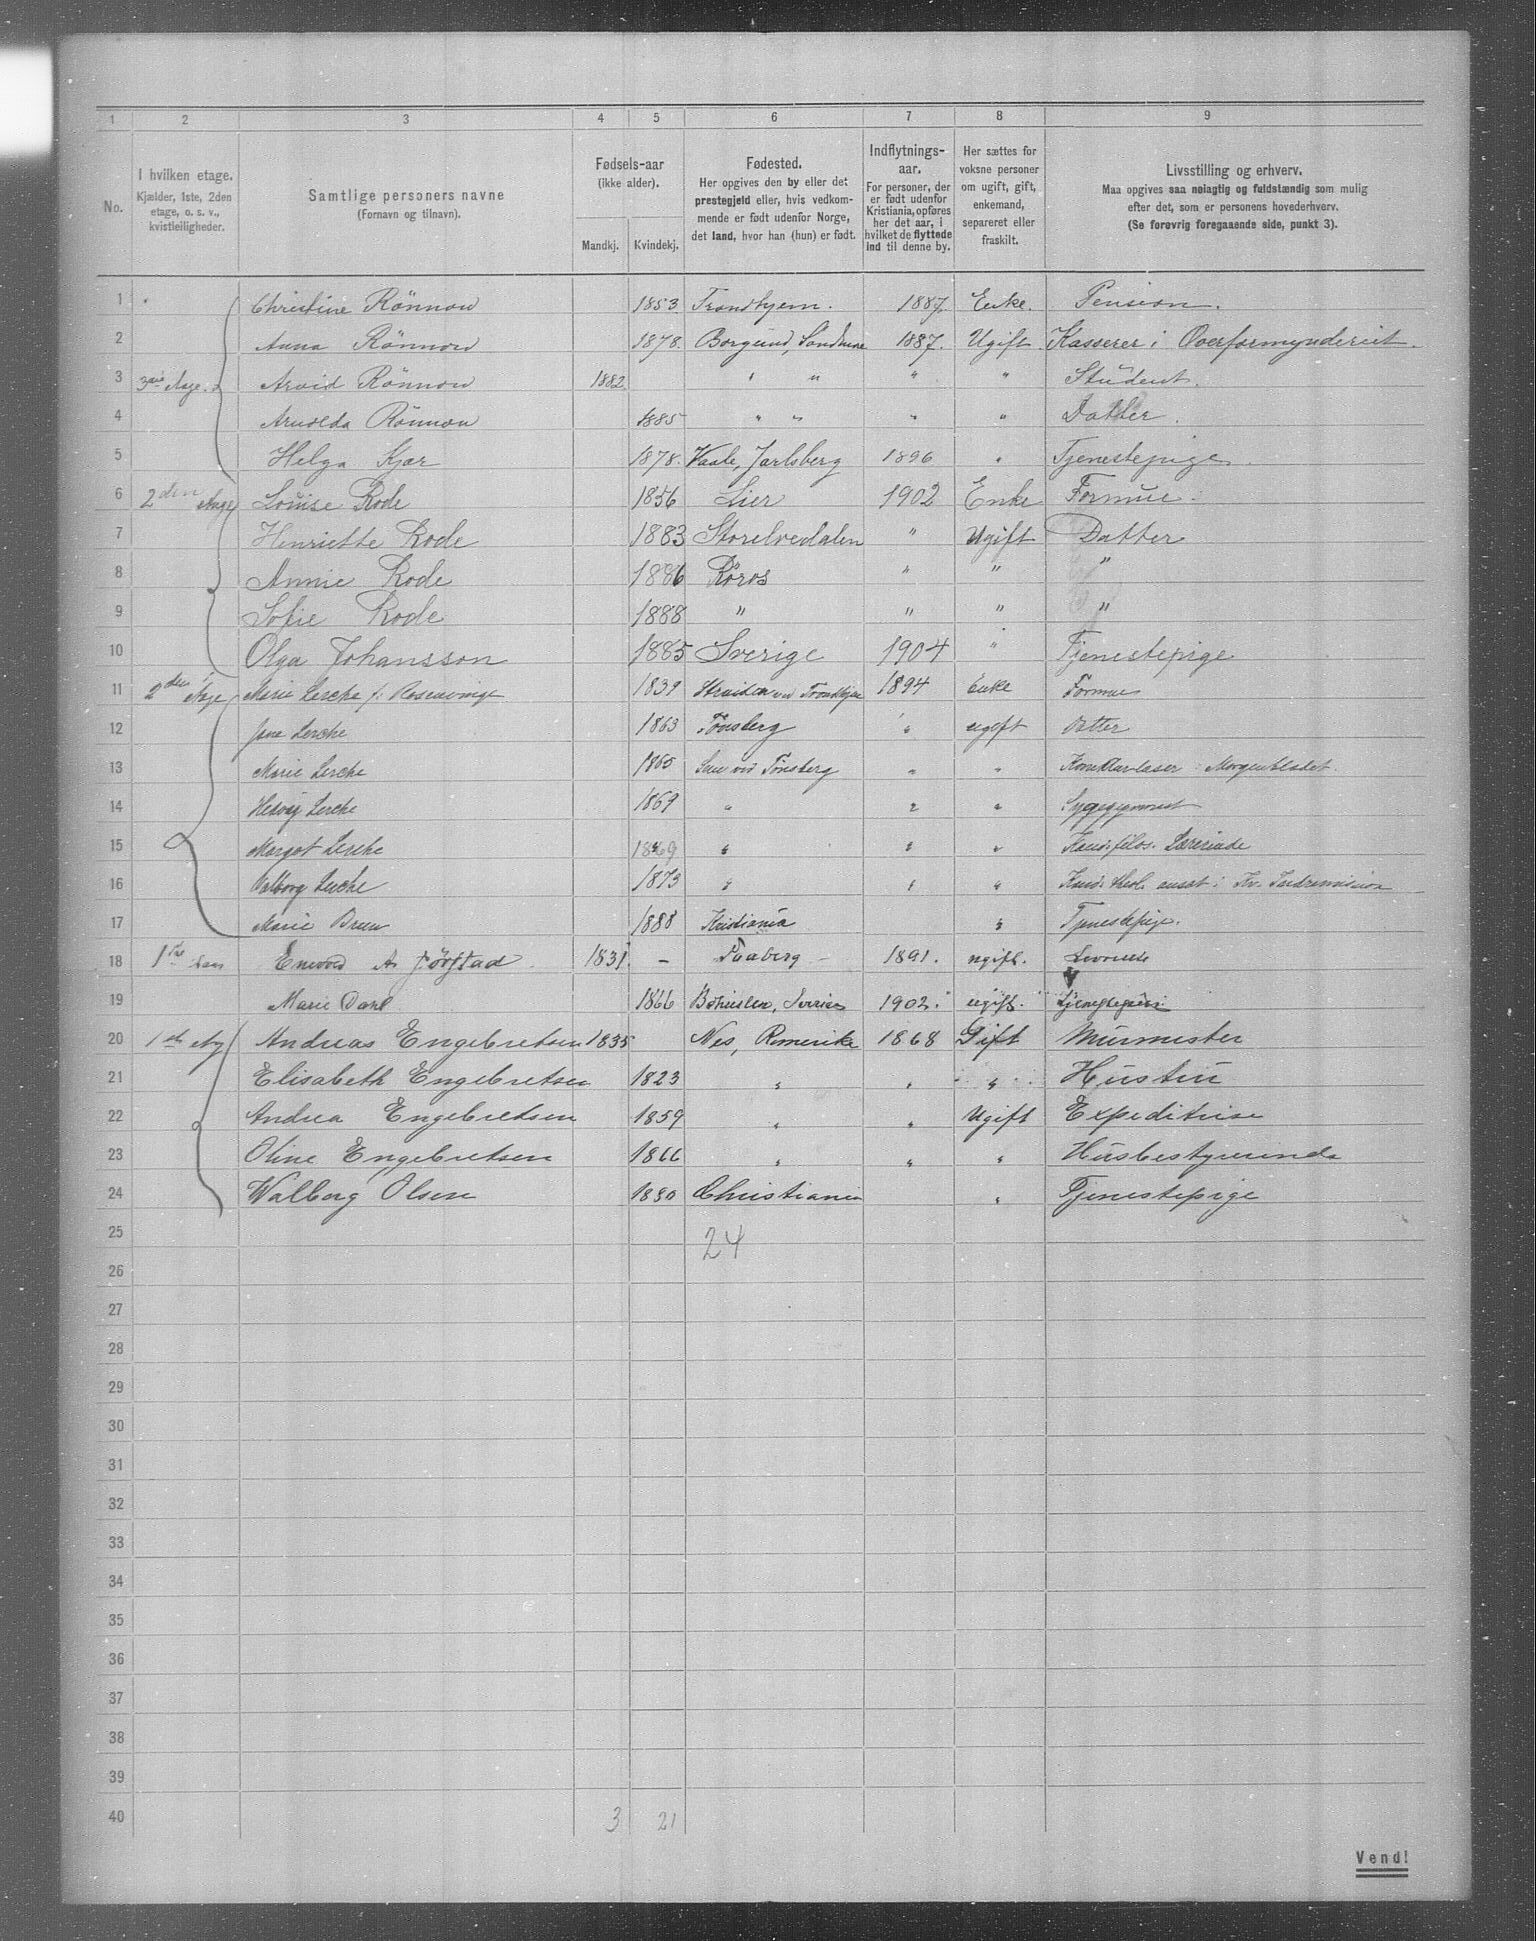 1 2 3 4 5 6 7 8 9
No.
I hvilken etage.
Kjælder, 1ste, 2den
etage, o. s. v.,
kvistleiligheder.
Samtlige personers navne
(Fornavn og tilnavn).
Fødsels-aar
(ikke alder).
Mandkj. Kvindekj.
Fødested.
Her opgives den by eller det
prestegjeld eller, hvis vedkom-
mende er født udenfor Norge,
det land, hvor han (hun) er født.
Indflytnings-
aar.
For personer, der
er født udenfor
Kristiania, opføres
her det aar, i
hvilket de flyttede
ind til denne by.
Her sættes for
voksne personer
om ugift, gift,
enkemand,
separeret eller
fraskilt.
Livsstilling og erhverv.
Maa opgives saa nøiagtig og fuldstændig som mulig
efter det, som er personens hovederhverv.
(Se forøvrig foregaaende side, punkt 3).
1 Christine Rönnow 1853 Trondhjem. 1887. Enke. Pension.
2 Anna Rönnow 1878. Borgund, Söndmøre 1887. Ugift. Kasserer i Overformynderiet.
3 3die Etage. Arvid Rönnow 1882 " " " " Student.
4 Arnolda Rönnow 1885 " " " " Datter.
5 Helga Kjær 1878. Vaale, Jarlsberg 1896 " Tjenestepige.
6 2den Etage Louise Rode 1856 Lier 1902 Enke Formue.
7 Henriette Rode 1883 Storelvedalen " Ugift Datter
8 Annie Rode 1886 Röros " " "
9 Sofie Rode 1888 " " " "
10 Olga Johansson 1885 Sverige 1904 " Tjenestepige
11 2den Etage Marie Lerche f. Rosenvinge 1839 Strinden ved Trondhjem 1894 Enke Formue
12 Jana Lerche 1863 Tönsberg " ugift Datter
13 Marie Lerche 1865 Sem ved Tönsberg " " Korrekturlæser i Morgenbladet.
14 Hedvig Lerche 1869 " " " Sygegymnast
15 Margot Lerche 1869 " " " Kand. filos. Lærerinde
16 Valborg Lerche 1873 " " " Kand. theol. ansat i Kr. Indremission
17 Marie Bruu 1888 Kristiania " Tjenestepige.
18 1ste A. 1831. - Faaberg - 1891. ugift.
19 Marie Dahl 1866 Bohuslen, Sverige 1902. ugift. Tjenestepige
20 1ste Etg Andreas Engebretsen 1835 Nes, Romerike 1868 Gift Murmester
21 Elisabeth Engebretsen 1823 " " " Hustru
22 Andrea Engebretsen 1859 " " Ugift Expeditrise
23 Oline Engebretsen 1866 " " " Husbestyrerinde
24 Walborg Olsen 1880 Christiania " Tjenestepige
25 24
26
27
28
29
30
31
32
33
34
35
36
37
38
39
40 3 21
Vend!